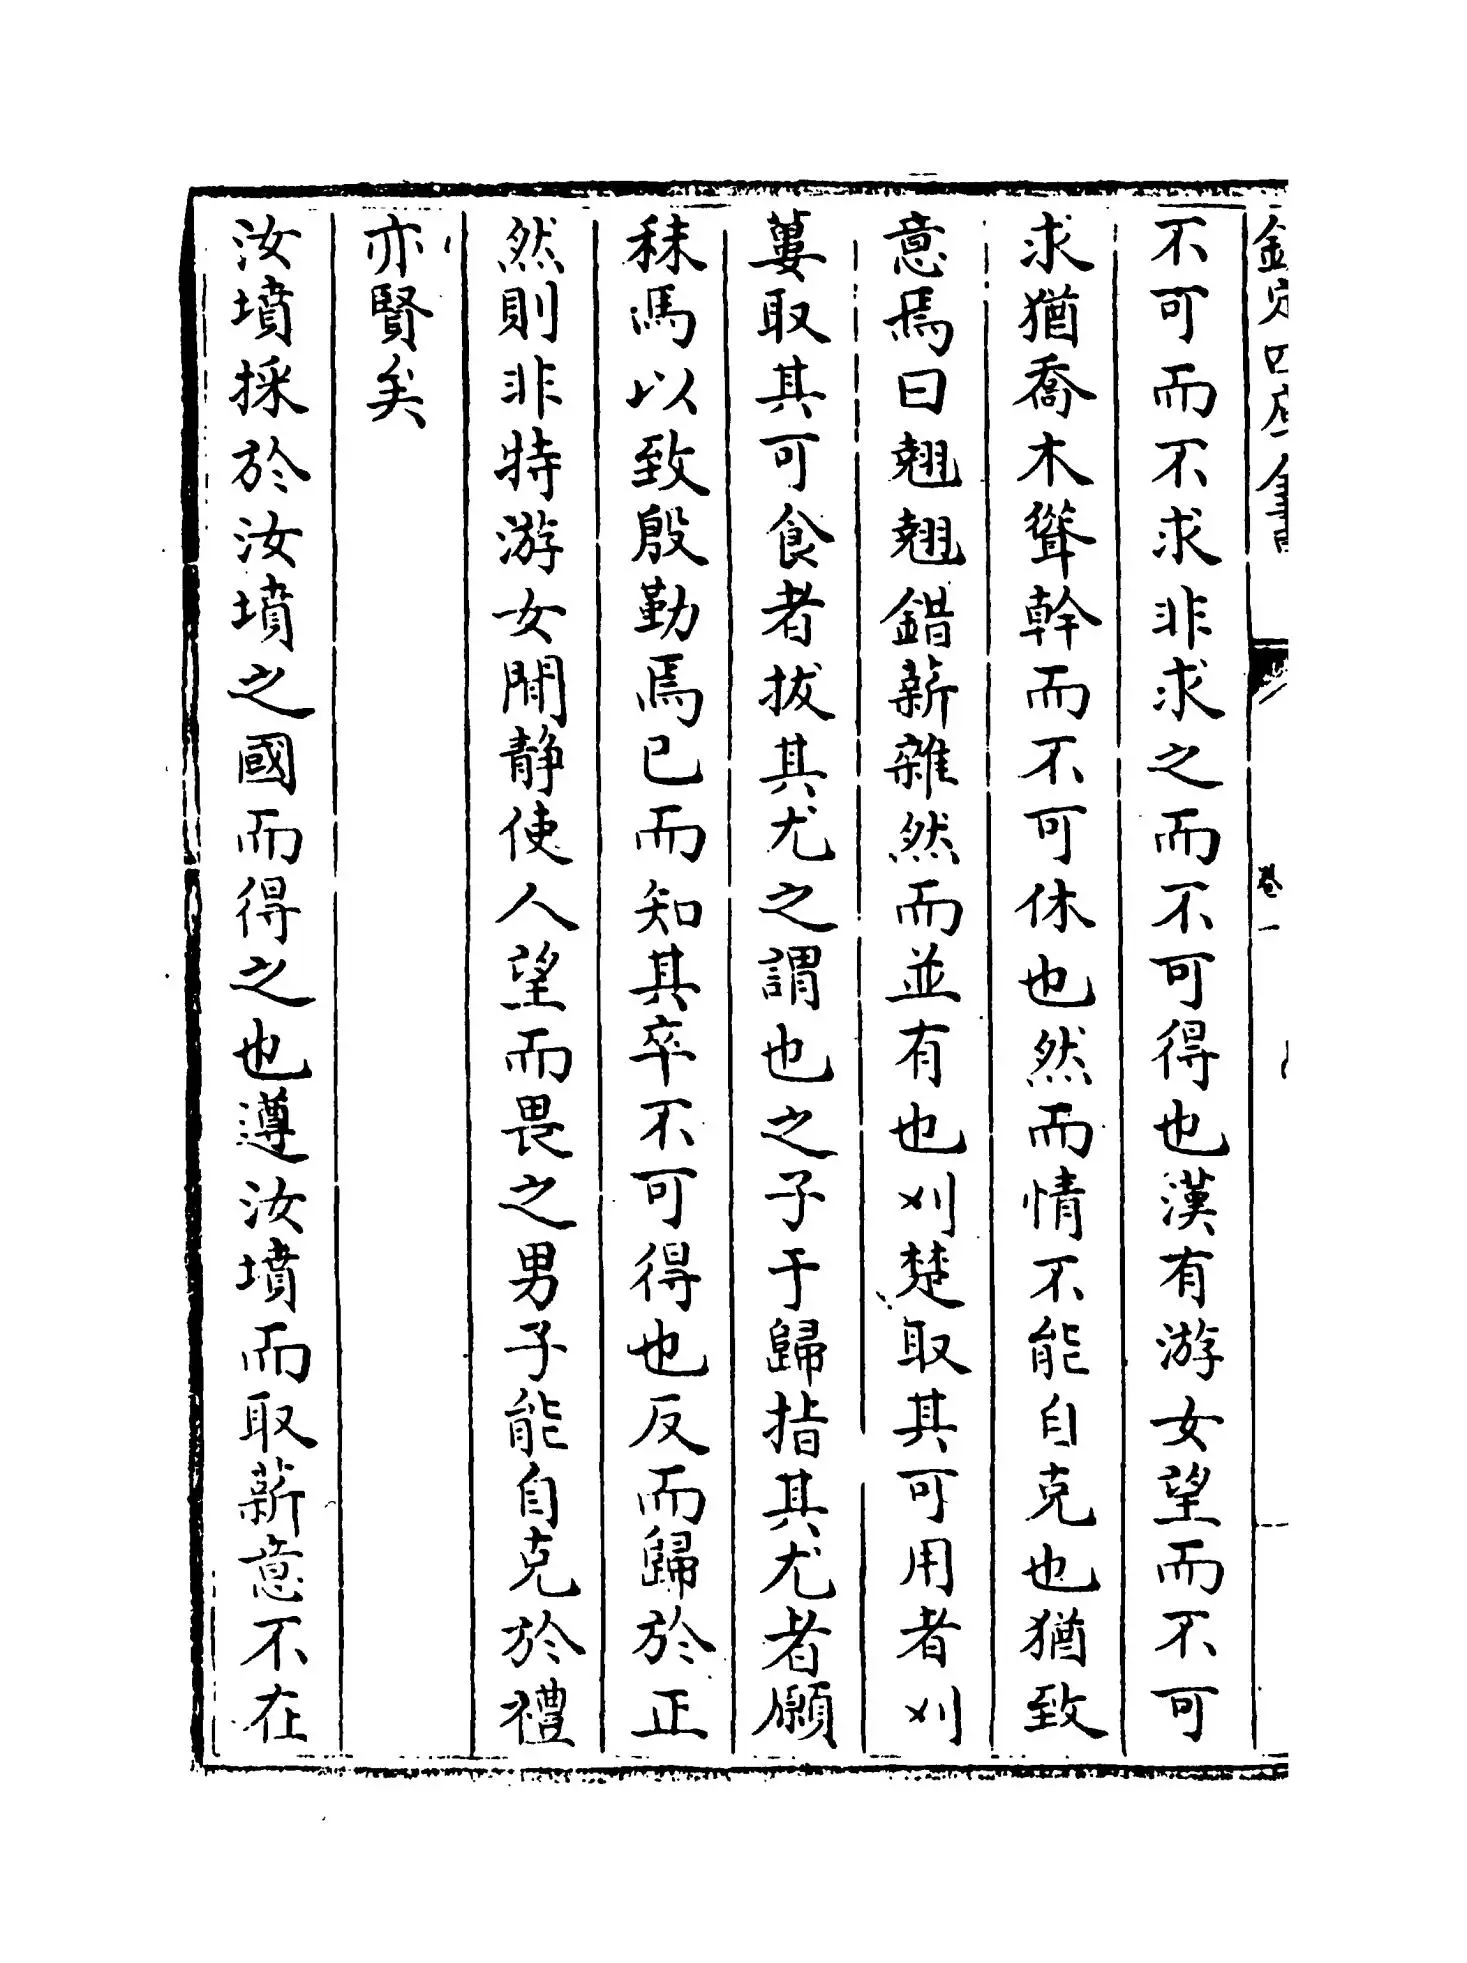 欽定四庫全書
卷一
不可而不求非求之而不可得也漢有游女望而不可
求猶喬木聳幹而不可休也然而情不能自克也猶致
意焉曰翹翹錯薪雜然而並有也刈楚取其可用者刈
蔞取其可食者拔其尤之謂也之子于歸指其尤者願
秣馬以致殷勤焉已而知其卒不可得也反而歸於正
然則非特游女閒靜使人望而畏之男子能自克於禮
亦賢矣
汝墳採於汝墳之國而得之也遵汝墳而取薪意不在